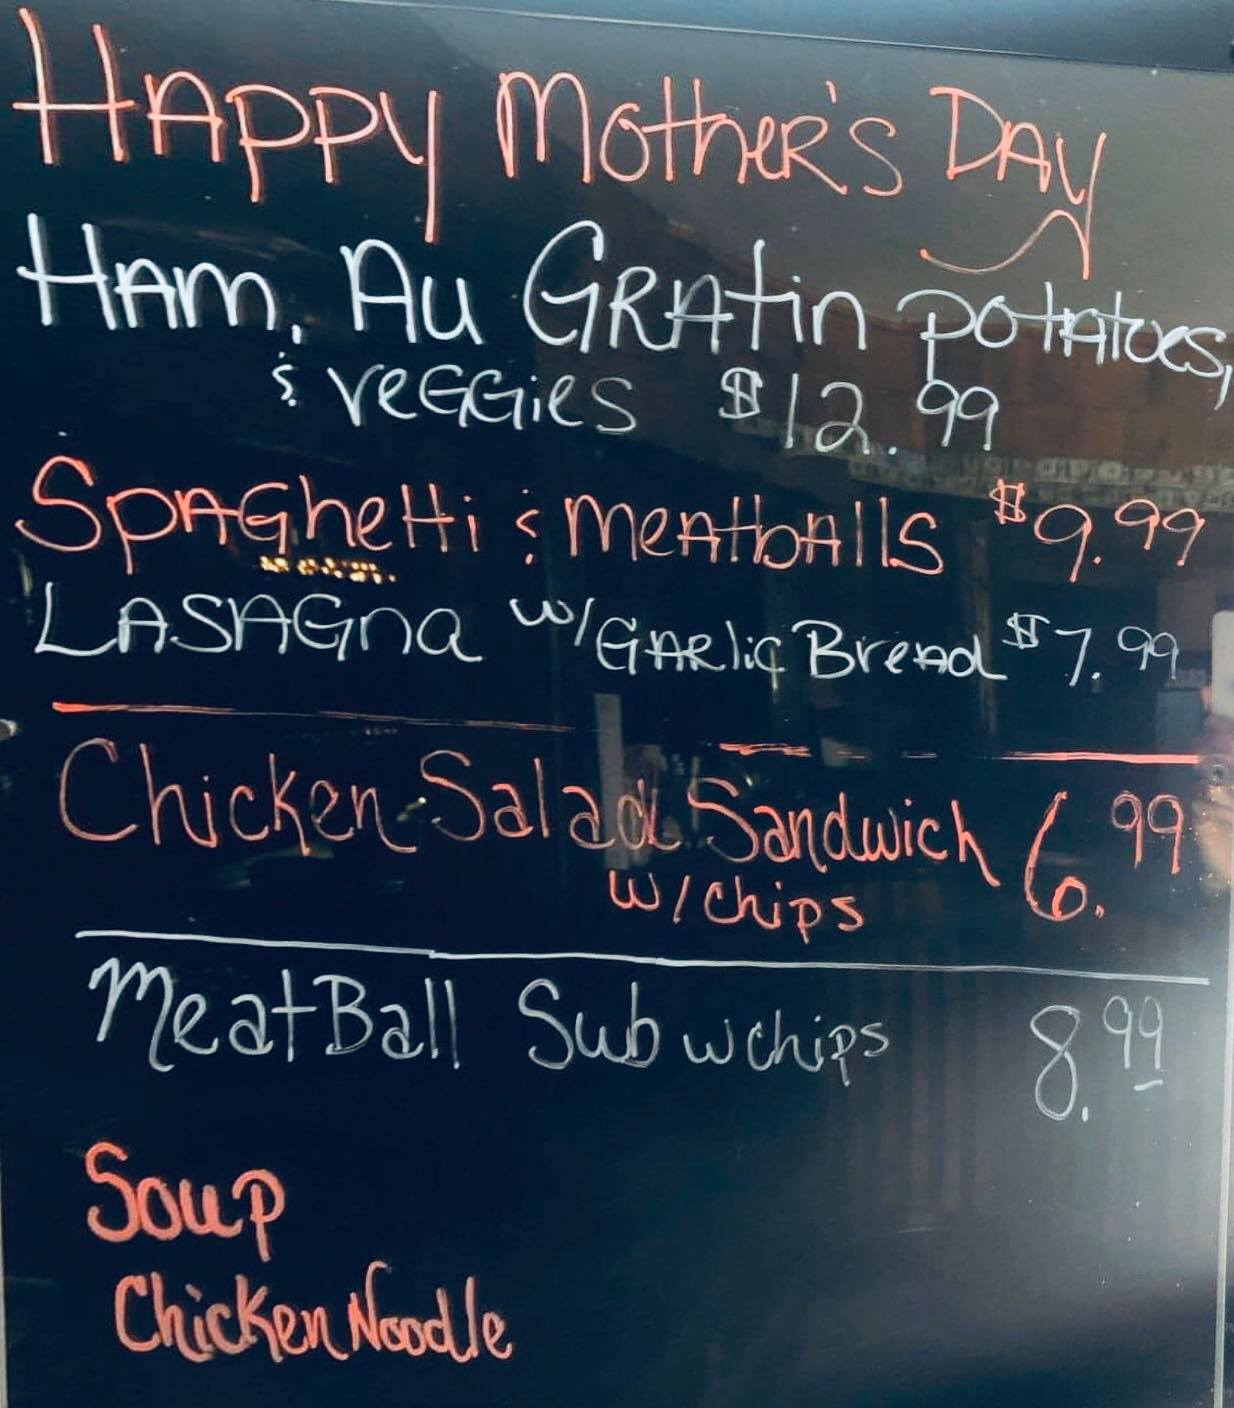 HAPPY MOTHER'S DAY
HAM, AU GRAtin POtAtOES,
& VEGGiES $12.99
SPAGhetti & MEAtbAllS $9.99
LASAGna w/GARlic BREAd $7.99
Chicken Salad Sandwich 6.99
w/chips
MeatBall Sub w chips 8.99
Soup
Chicken Noodle